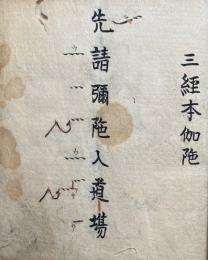 三經本伽陀
先請彌陀入道場